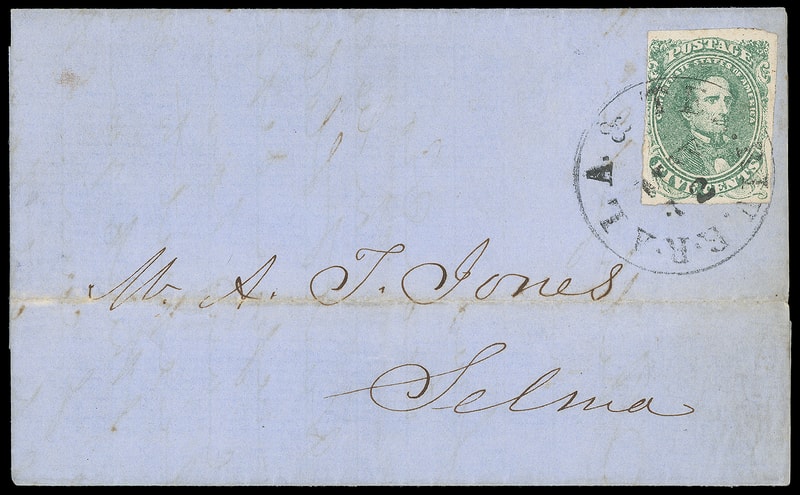 POSTAGE
CONFEDERATE STATES OF AMERICA
FIVE CENTS
ALA. &
R.R.
Mr. A. T. Jones
Selma